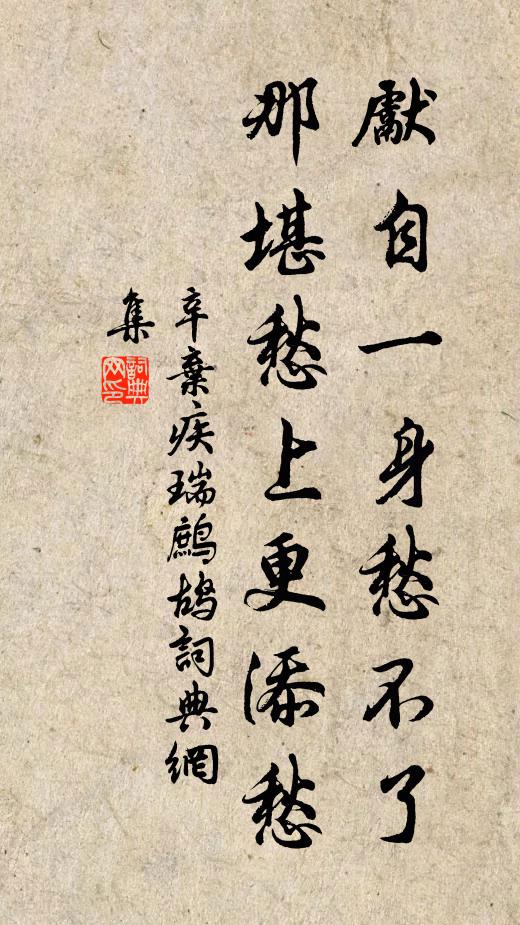 獻自一身愁不了
那堪愁上更添愁
辛棄疾瑞鷓鴣詞典網
集
詞典网印